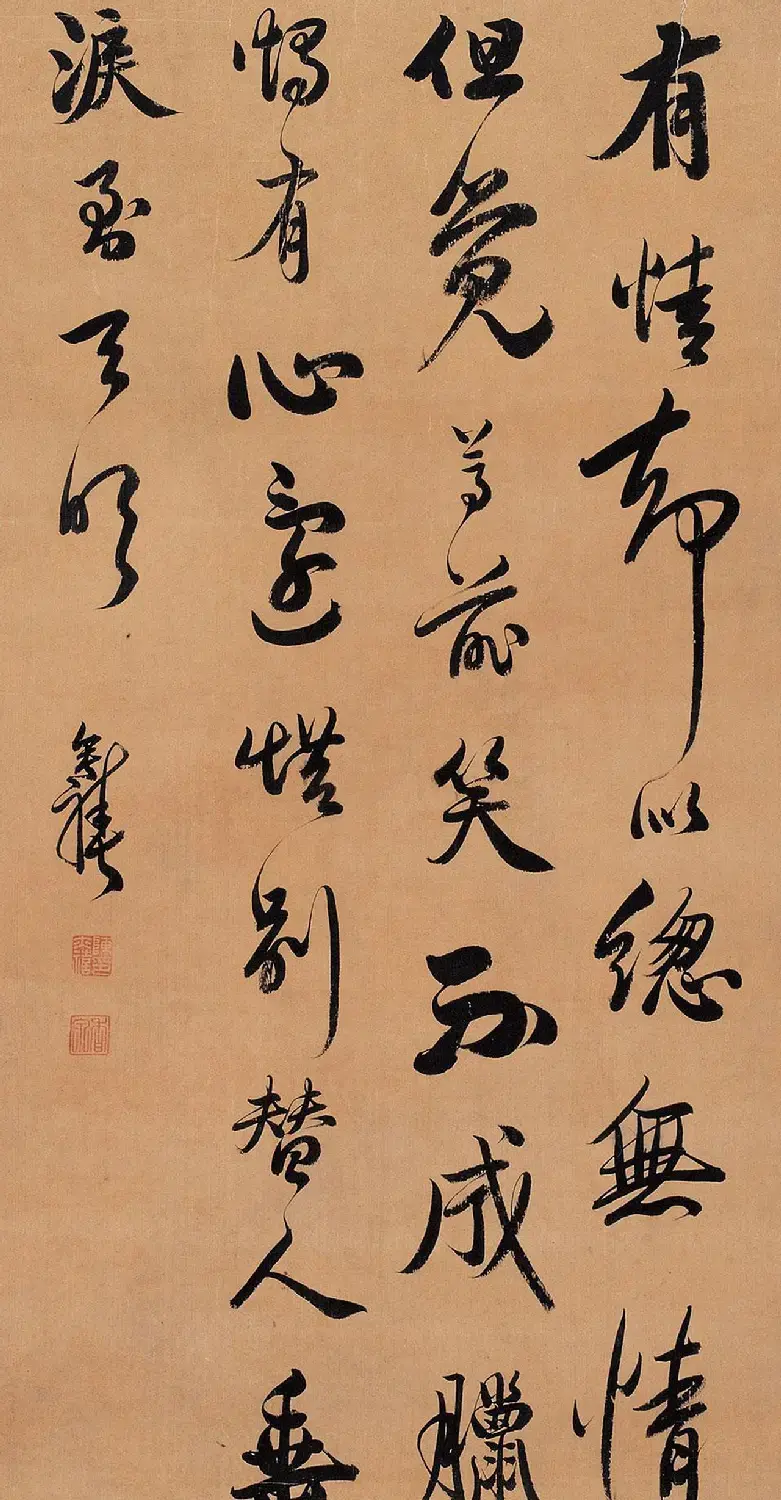 有情却似總無情
但覺尊前笑不成臘
燭有心還惜別替人垂
淚到天明
奕禧